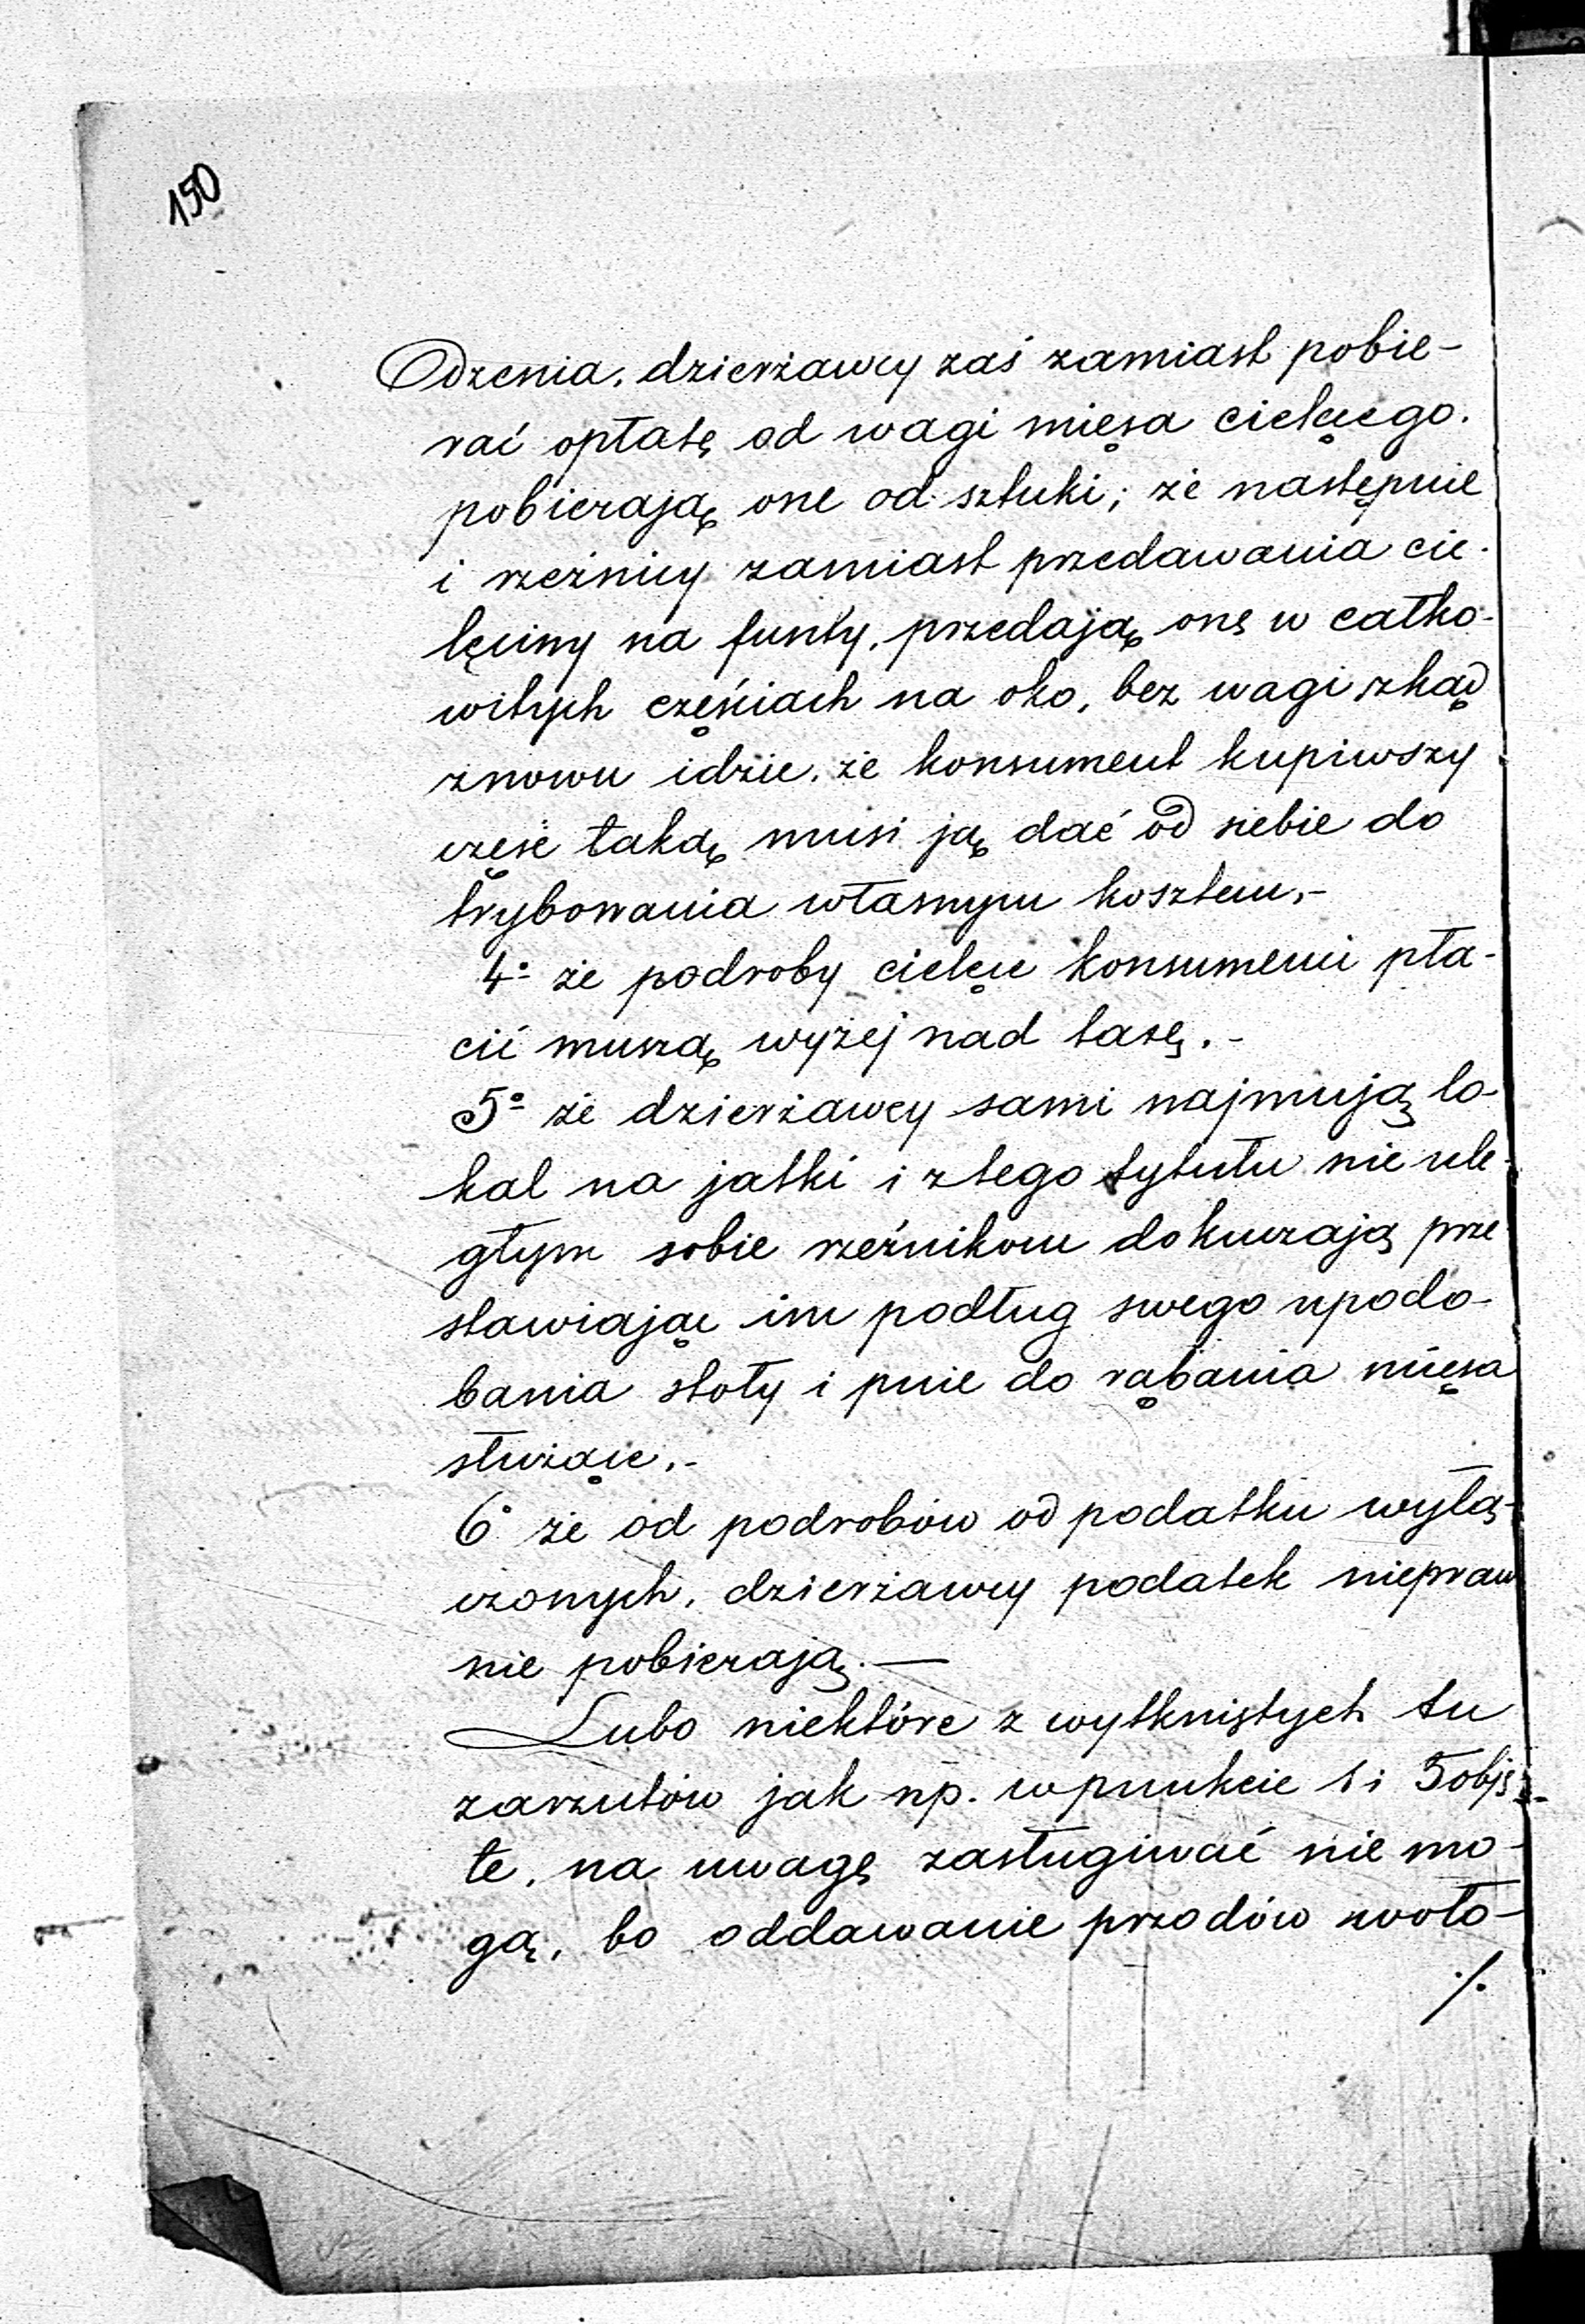 150
Odzenia, dzierżawcy zaś zamiast pobie-
rać opłatę od wagi mięsa cielęcego.
pobierają one od sztuki; że następnie
i rzeźnicy zamiast przedawania cie-
lęciny na funty, przedają onę w całko-
witych częściach na oko, bez wagi zkąd
znowu idzie, że konsument kupiwszy
część taką musi ją dać od siebie do
trybowania własnym kosztem.-
4° że podroby cielęce konsumenci pła-
cić muszą wyżej nad taxę.-
5° że dzierżawcy sami najmują lo-
kal na jatki i z tego tytułu nie ule-
głym sobie rzeźnikom dokuczają prze
stawiając im podług swego upodo-
bania stoły i pnie do rąbania mięsa
służące.-
6° że od podrobów od podatku wyłą-
czonych, dzierżawcy podatek niepraw
nie pobierają.—
Lubo niektóre z wytkniętych tu
zarzutów jak np. w punkcie 1 i 5 obję-
te, na uwagę zasługiwać nie mo-
gą, bo oddawanie przodów woło-
./.